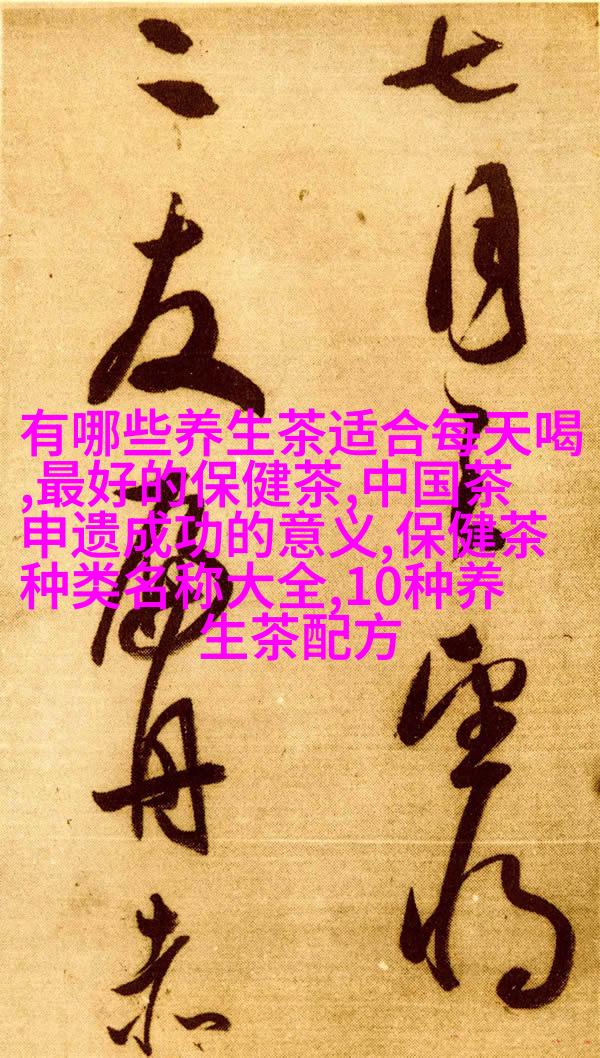 有哪些养生茶适合每天喝
,最好的保健茶,中国茶
申遗成功的意义,保健茶
种类名称大全,10种养
生茶配方
七月望将
二友舟赤